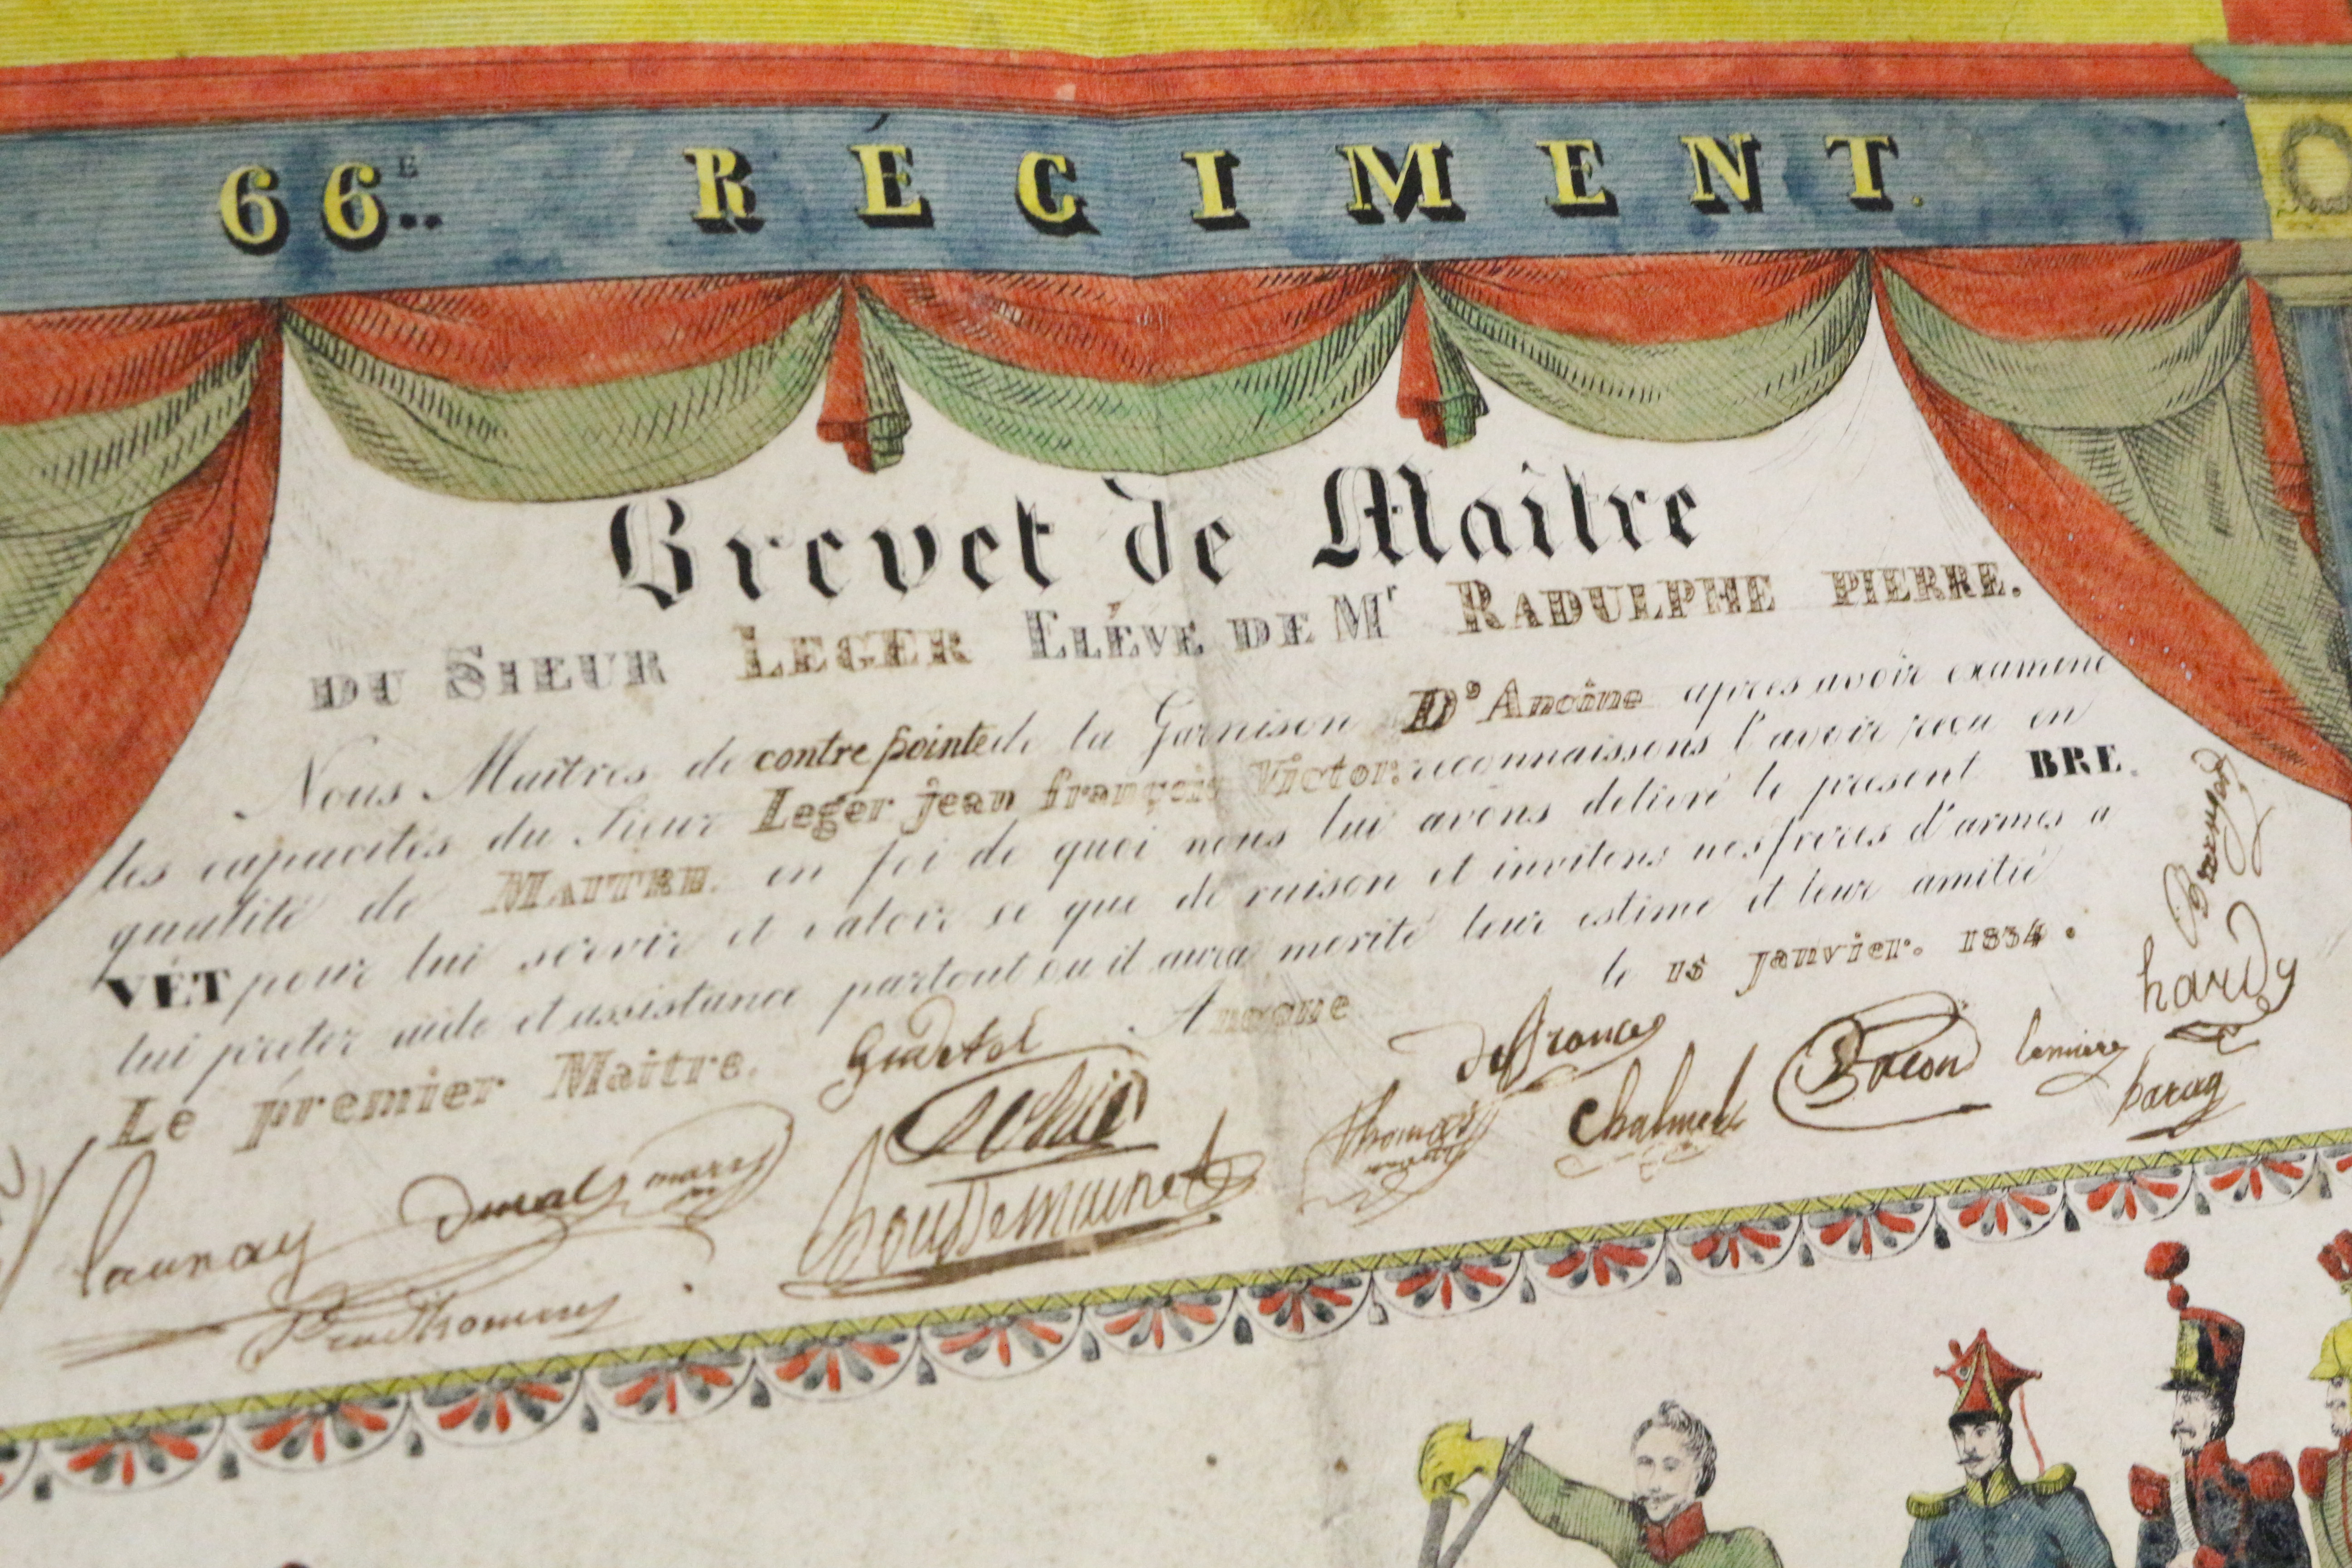 66E RÉGIMENT.
Brevet de Maître
DU SIEUR LEGER ELÉVE DE Mr RADULPHE PIERRE.
Nous Maîtres de contre pointe de la Garnison D'Ancône apres avoir examiné
les capacités du Sieur Leger jean françois Victor: reconnaissons l'avoir reçu en
qualité de MAITRE. en foi de quoi nous lui avons delivré le present BRE.
VET pour lui servir et valoir ce que de raison et invitons nos freres d'armes a
lui preter aide et assistance partout ou il aura merité leur estime et leur amitié
Ancone le 15 Janvier. 1834.
Le premier Maitre.
defrance
hardy
Bacon
Chalmel
barag
launay
duval
Houssemainet
Prudhomme